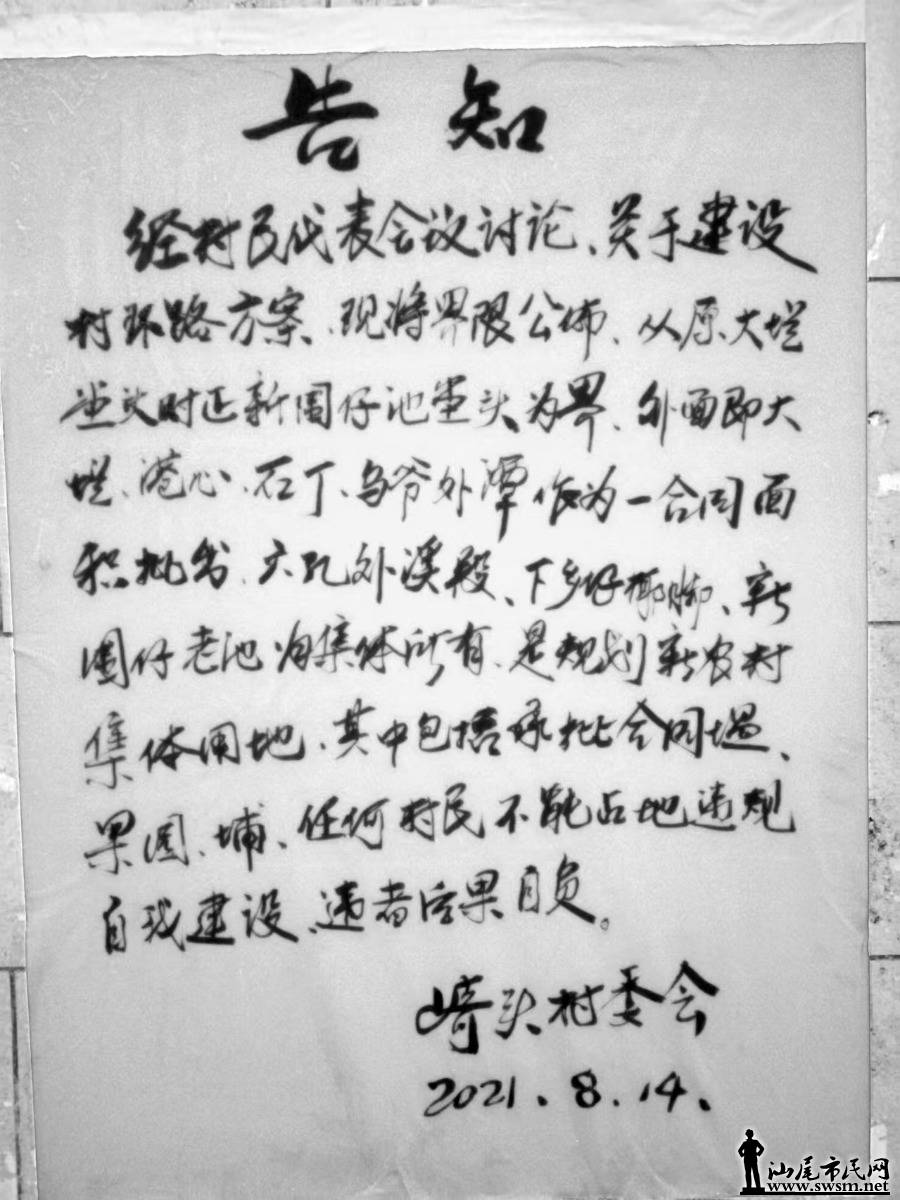 告知
经村民代表会议讨论、关于建设
村环路方案、现将界限公佈、从原大垾
头对正新围仔池头为界、外面即大
垾、港心、石丁、乌爷外潭作为一合同面
积批出、六孔外溪段、下乡仔脚、新
围仔老池为集体所有、是规划新农村
集体用地、其中包括承批合同塭、
果园、埔、任何村民不能占地违规
自我建设、违者后果自负。
崎头村委会
2021.8.14.
汕尾市民网
www.swsm.net